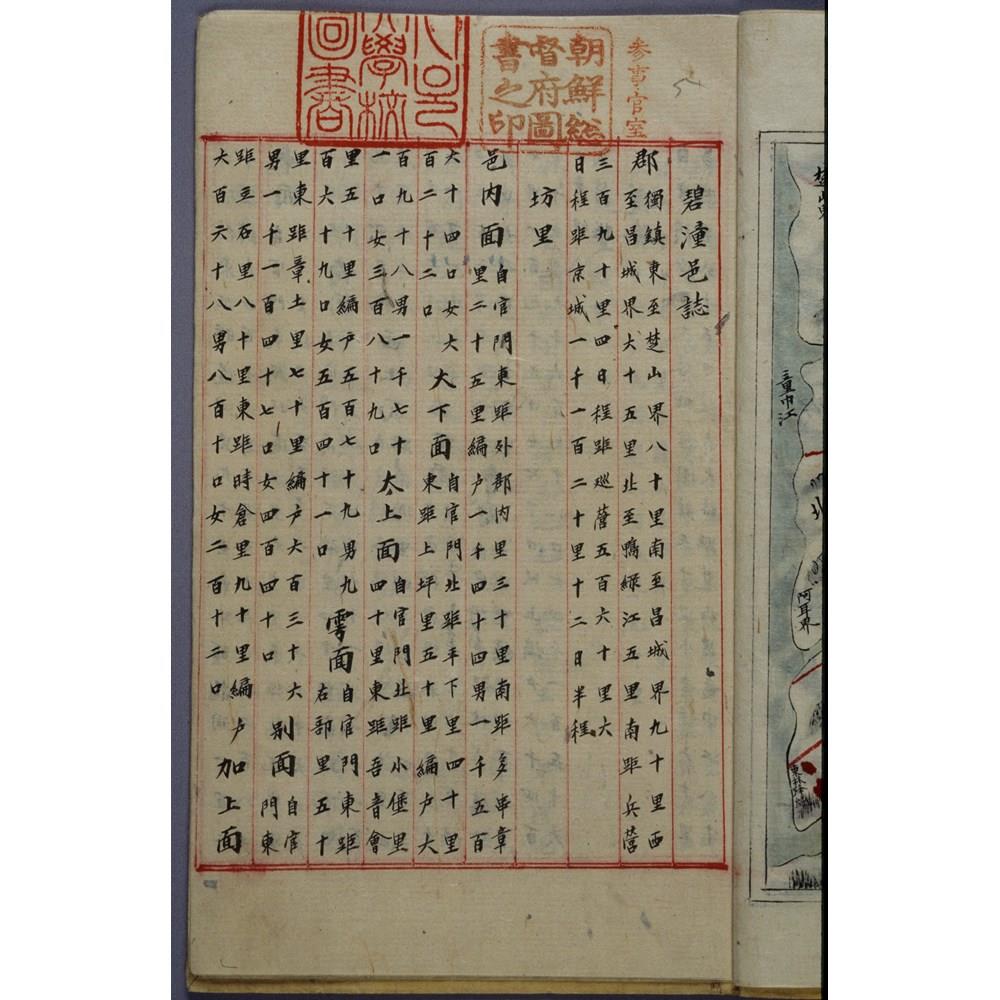 參事官室
朝鮮総
督府圖
書之印
學校
圖書
碧潼邑誌
郡獨鎮東至楚山界八十里南至昌城界九十里西
至昌城界大十五里北至鴨綠江五里南距兵營
三百九十里四日程距巡營五百六十里六
日程距京城一千一百二十里十二日半程
坊里
邑内面自官門東距外郡内里三十里南距多串章
里二十五里編户一千四十四男一千五百
大十四口女大
百二十二口
大下面自官門北距平下里四十里
東距上坪里五十里編户大
百九十八男一千七十
一口女三百八十九口
太上面自官門北距小堡里
四十里東距吾音會
里五十里編户五百七十九男九
百六十九口女五百四十一口
雩面自官門東距
右部里五十
里東距章土里七十里編户大百三十大
男一千一百四十七口女四百四十口
別面自官
門東
距立石里八十里東距時倉里九十里編户
大百六十八男八百十口女二百十二口
加上面
童巾江
阿耳界